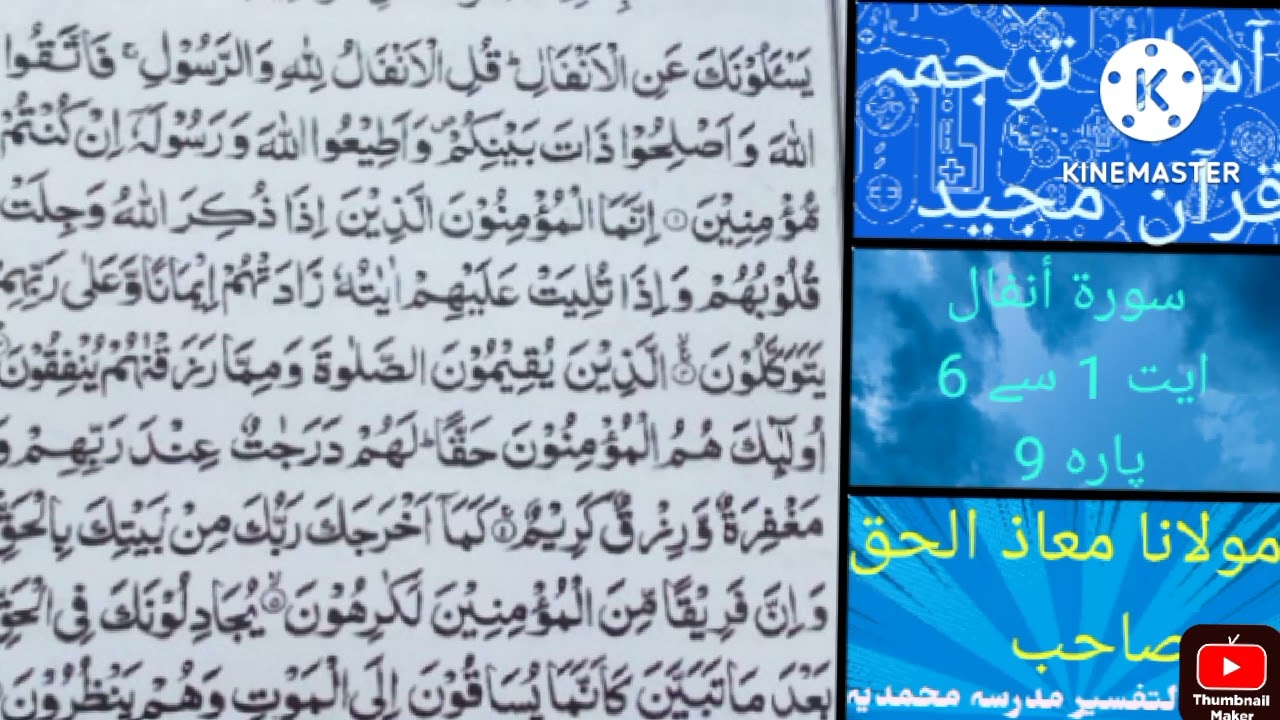 يَسْـَٔلُوْنَكَ عَنِ الْاَنْفَالِ ؕ قُلِ الْاَنْفَالُ لِلّٰهِ وَالرَّسُوْلِ ۚ فَاتَّقُوا
اللّٰهَ وَاَصْلِحُوْا ذَاتَ بَيْنِكُمْ ۪ وَاَطِيْعُوا اللّٰهَ وَرَسُوْلَهٗۤ اِنْ كُنْتُمْ
مُّؤْمِنِيْنَ ۝۱ اِنَّمَا الْمُؤْمِنُوْنَ الَّذِيْنَ اِذَا ذُكِرَ اللّٰهُ وَجِلَتْ
قُلُوْبُهُمْ وَاِذَا تُلِيَتْ عَلَيْهِمْ اٰيٰتُهٗ زَادَتْهُمْ اِيْمَانًا وَّعَلٰى رَبِّهِمْ
يَتَوَكَّلُوْنَ ۝۲ۚۖ الَّذِيْنَ يُقِيْمُوْنَ الصَّلٰوةَ وَمِمَّا رَزَقْنٰهُمْ يُنْفِقُوْنَ
اُولٰٓئِكَ هُمُ الْمُؤْمِنُوْنَ حَقًّا ؕ لَهُمْ دَرَجٰتٌ عِنْدَ رَبِّهِمْ وَ
مَغْفِرَةٌ وَّرِزْقٌ كَرِيْمٌ ۝۴ۚ كَمَاۤ اَخْرَجَكَ رَبُّكَ مِنْۢ بَيْتِكَ بِالْحَقِّ
وَاِنَّ فَرِيْقًا مِّنَ الْمُؤْمِنِيْنَ لَكٰرِهُوْنَ ۝۵ۙ يُجَادِلُوْنَكَ فِى الْحَقِّ
بَعْدَ مَا تَبَيَّنَ كَاَنَّمَا يُسَاقُوْنَ اِلَى الْمَوْتِ وَهُمْ يَنْظُرُوْنَ
ترجمہ
قرآن مجید
KINEMASTER
سورة أنفال
ایت 1 سے 6
پارہ 9
مولانا معاذ الحق
صاحب
التفسیر مدرسہ محمدیہ
Thumbnail
Maker